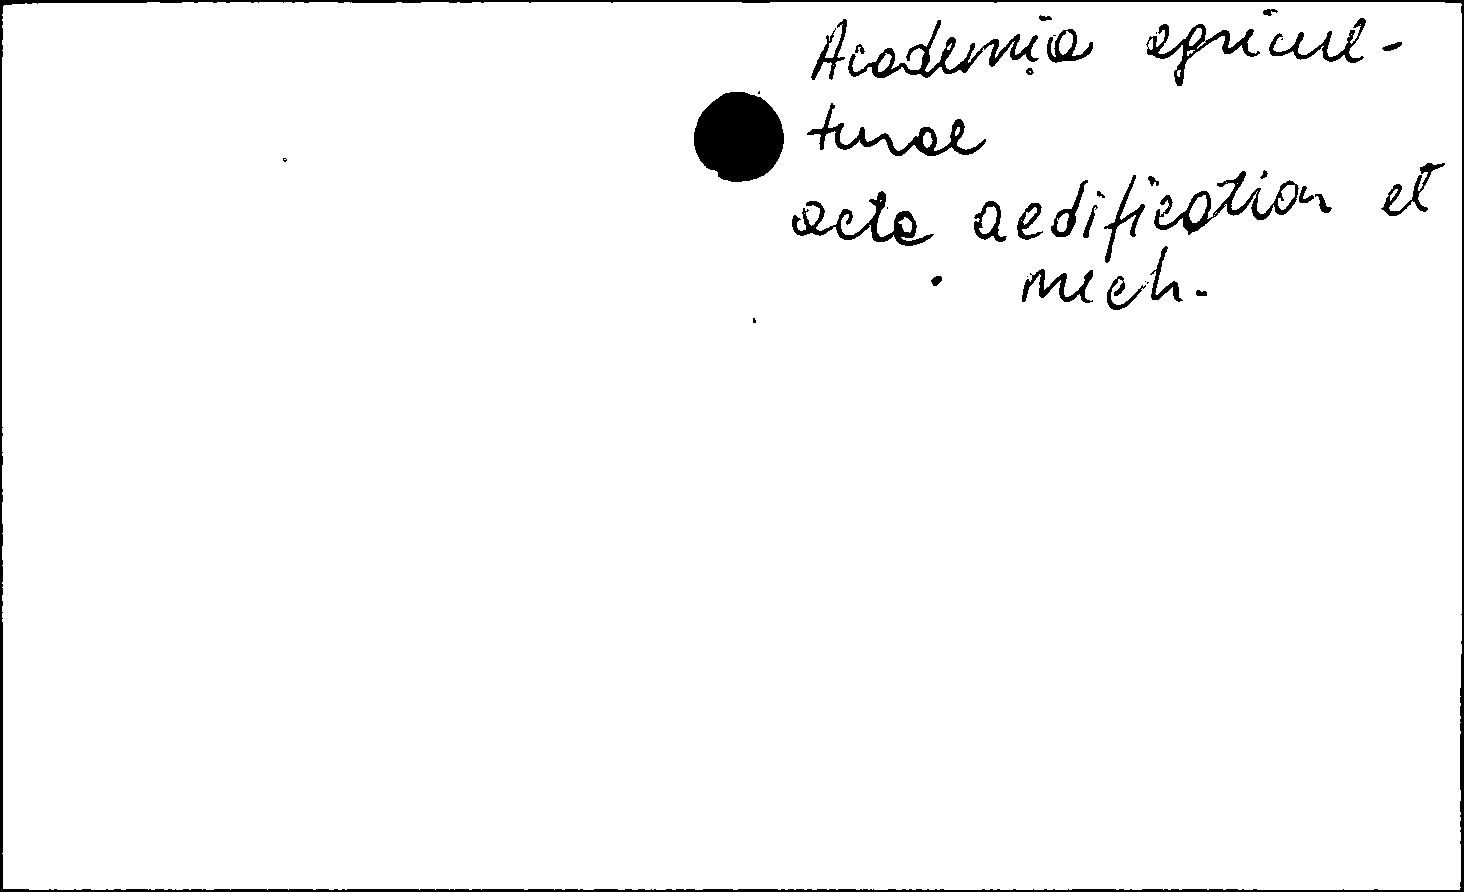 Academia agricul-
turae
acta aedification et
mech.